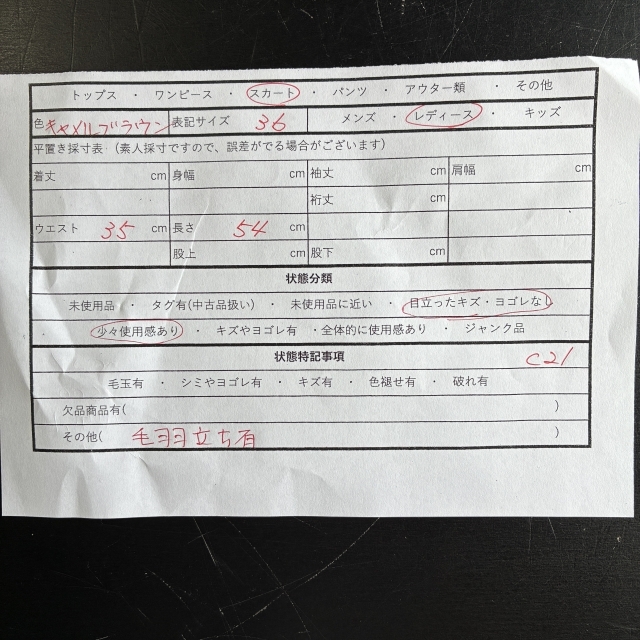 トップス ・ ワンピース ・ スカート ・ パンツ ・ アウター類 ・ その他
色 キャメルブラウン 表記サイズ 36 メンズ ・ レディース ・ キッズ
平置き採寸表 (素人採寸ですので、誤差がでる場合がございます)
着丈 cm 身幅 cm 袖丈 cm 肩幅 cm
裄丈 cm
ウエスト 35 cm 長さ 54 cm
股上 cm 股下 cm
状態分類
未使用品 ・ タグ有(中古品扱い) ・ 未使用品に近い ・ 目立ったキズ・ヨゴレなし
少々使用感あり ・ キズやヨゴレ有 ・全体的に使用感あり ・ ジャンク品
状態特記事項 C21
毛玉有 ・ シミやヨゴレ有 ・ キズ有 ・ 色褪せ有 ・ 破れ有
欠品商品有( )
その他( 毛羽立ち有 )